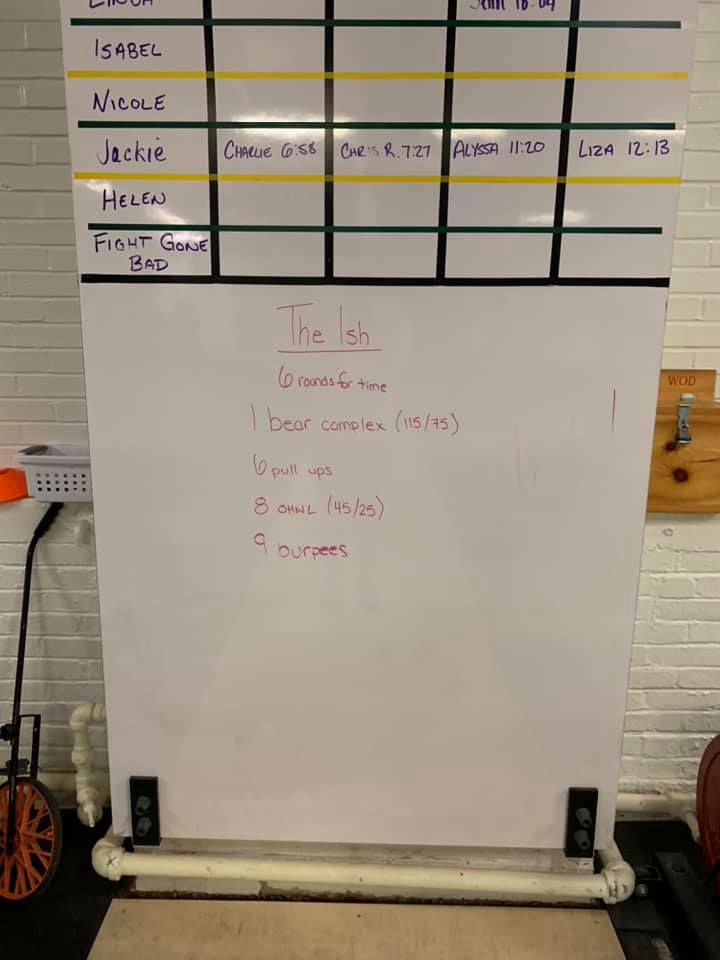 LINDA
Jenn 18:04
ISABEL
NICOLE
Jackie CHARLIE 6:58 CHRIS R. 7:27 ALYSSA 11:20 LIZA 12:13
HELEN
FIGHT GONE
BAD
The Ish
6 rounds for time
1 bear complex (115/75)
6 pull ups
8 OHWL (45/25)
9 burpees
WOD